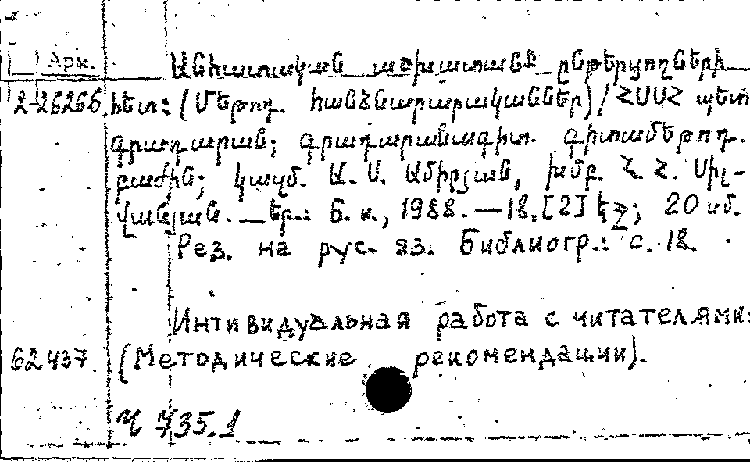 Арм. Անհատական աշխատանք ընթերցողների
2-26266 հետ: (Մեթոդ. հանձնարարականներ) / ՀՍՍՀ պետ.
գրադարան; գրադարանագիտ. գիտամեթոդ.
բաժին; կազմ. Ա. Ս. Ամիրյան, խմբ. Հ. Հ. Սիլ-
վանյան. — Եր.: Б. и., 1988. — 18, [2] էջ; 20 սմ.
Рез. на рус. яз. Библиогр.: с. 18.
Интивидуальная работа с читателями:
62437 (Методические рекомендации).
Ч 735.1